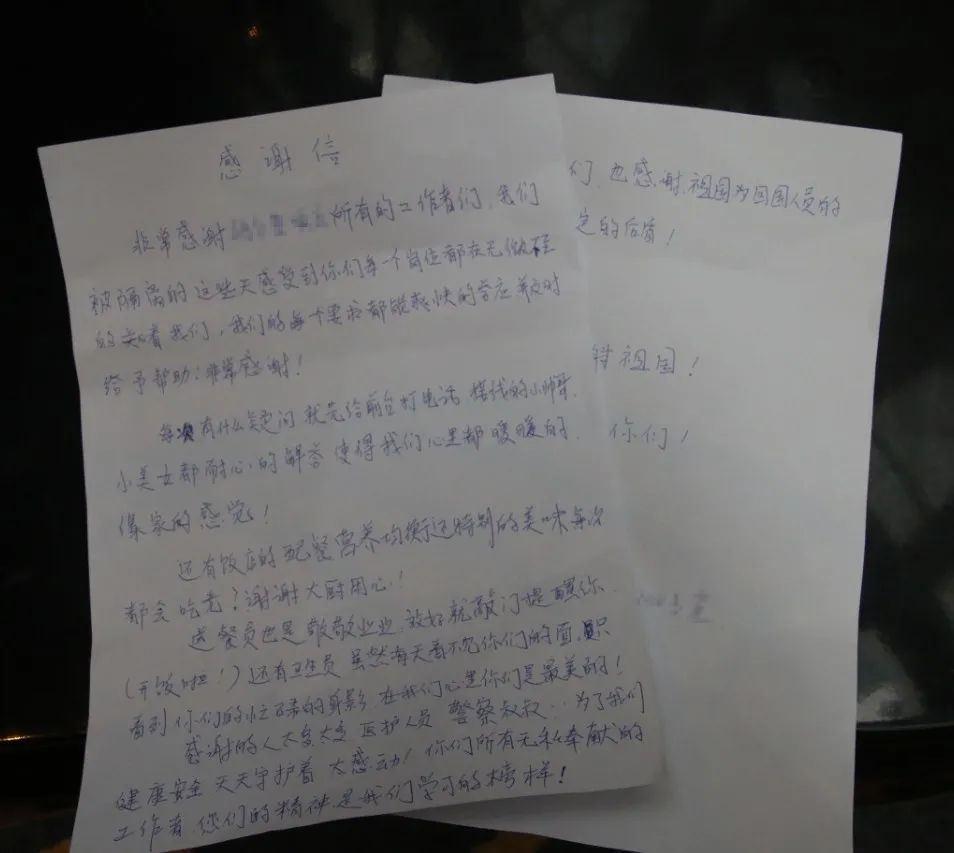 感谢信
非常感谢 所有的工作者们,我们
被隔离的这些天感受到你们每一个岗位都在无微
的关心着我们,我们的每个要求都能很快的答应并及时
给予帮助:非常感谢!
每次有什么疑问就先给前台打电话 接线的小帅哥、
小美女都耐心的解答 使得我们心里都暖暖的,
像家的感觉!
还有饭店的配餐营养均衡还特制的美味每次
都会吃光?谢谢大厨用心!
送餐员也是敬敬业业,放好就敲门提醒你、
(开饭啦!)还有卫生员 虽然每天看不见你们的面,只
看到你们的忙碌的身影,在我们心里你们是最美的!
感谢的人太多太多 医护人员 警察叔叔..为了我们
健康安全 天天守护着 太感动!你们所有无私奉献的
工作者,您们的精神是我们学习的榜样!
们,也感谢祖国为回国人员的
定的后盾!
祖国!
你们!